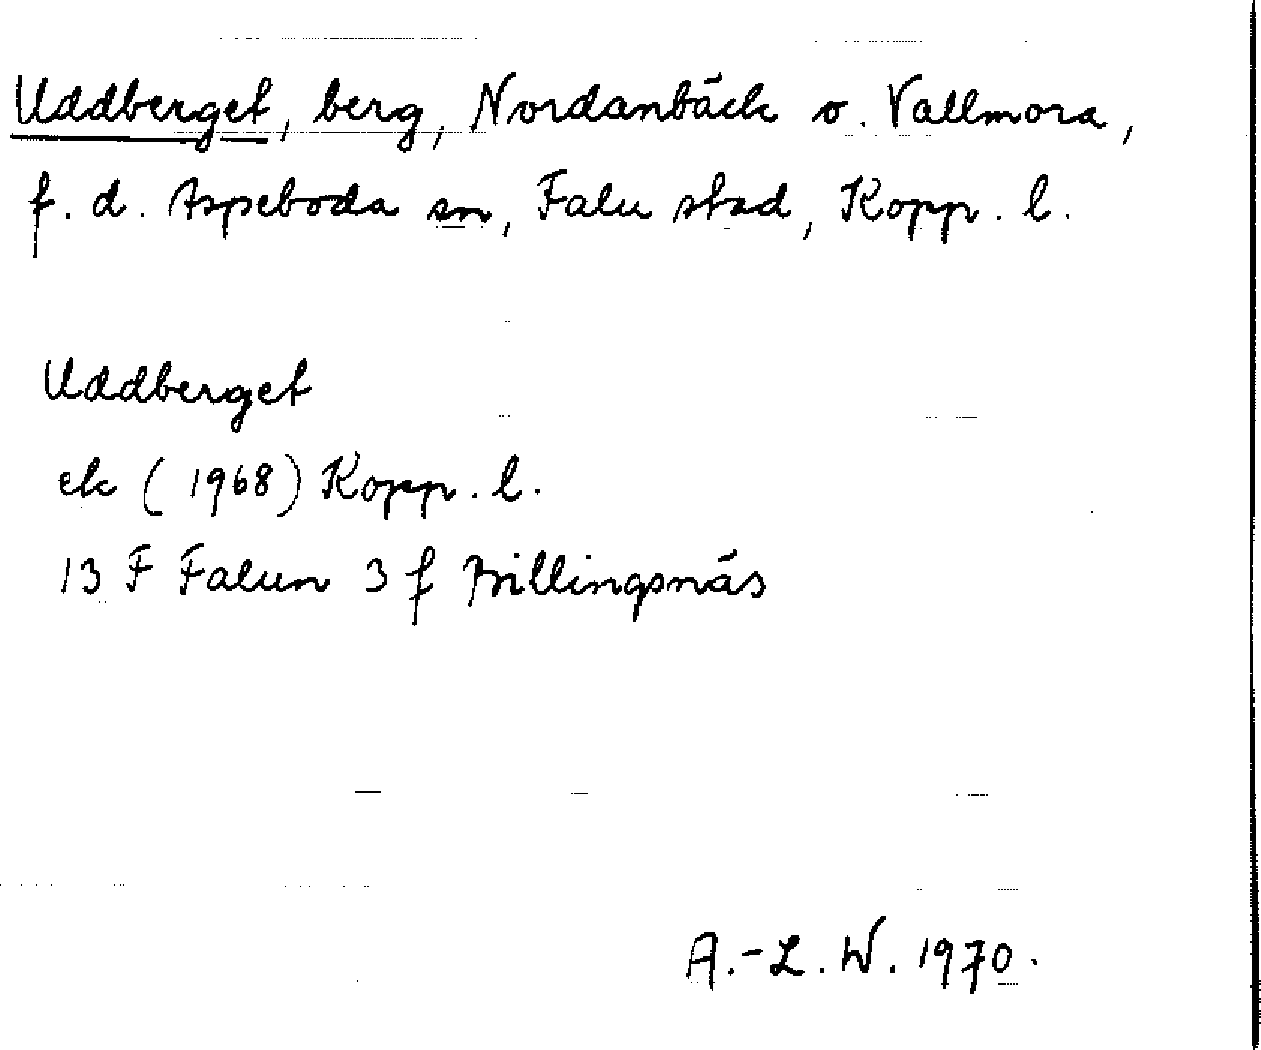 Uddberget, berg, Nordanbäck o. Vallmora,
f. d. Aspeboda sn, Falu stad, Kopp. l.
Uddberget
ek (1968) Kopp. l.
13 F Falun 3 f Billingsnäs
A.-L. W. 1970.